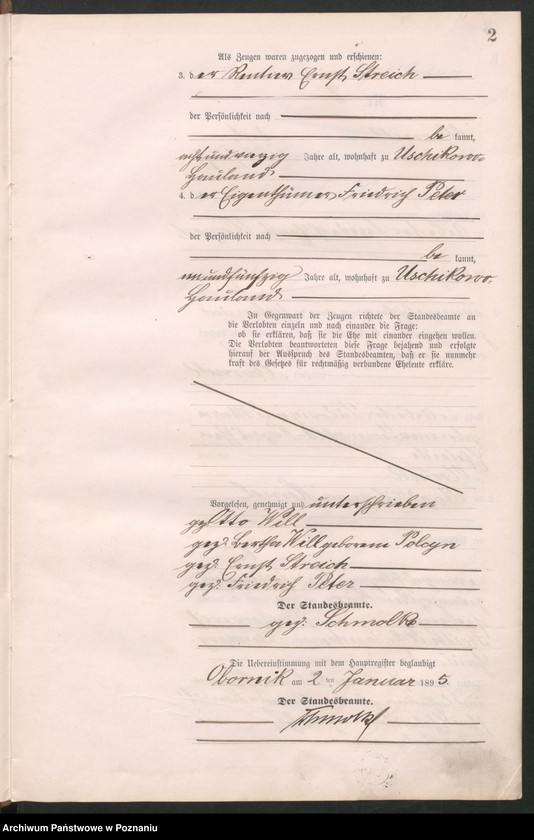 2
Als Zeugen waren zugezogen und erschienen:
3. der Rentier Ernst Streich
der Persönlichkeit nach
be kannt,
achtundvierzig Jahre alt, wohnhaft zu Uschikowo-
Hauland
4. der Eigenthümer Friedrich Peter
der Persönlichkeit nach
be kannt,
einundfünfzig Jahre alt, wohnhaft zu Uschikowo-
Hauland
In Gegenwart der Zeugen richtete der Standesbeamte an
die Verlobten einzeln und nach einander die Frage:
ob sie erklären, daß sie die Ehe mit einander eingehen wollen.
Die Verlobten beantworteten diese Frage bejahend und erfolgte
hierauf der Ausspruch des Standesbeamten, daß er sie nunmehr
kraft des Gesetzes für rechtmäßig verbundene Eheleute erkläre.
Vorgelesen, genehmigt und unterschrieben
gez. Otto Will
gez. Bertha Will geborene Polzyn
gez. Ernst Streich
gez. Friedrich Peter
Der Standesbeamte.
gez. Schmolke
Die Uebereinstimmung mit dem Hauptregister beglaubigt
Obornik am 2 ten Januar 1895.
Der Standesbeamte.
Schmolke
Archiwum Państwowe w Poznaniu